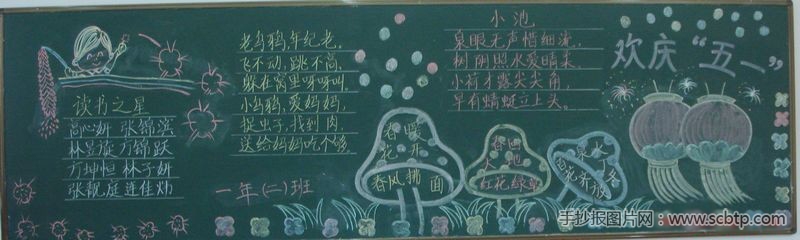 读书之星
高心妍 张锦滨
林昱旋 方锦跃
亓坤恒 林子妍
张靓庭 连佳炜
老乌鸦,年纪老,
飞不动,跳不高,
躲在窝里呀呀叫。
小乌鸦,爱妈妈,
捉虫子,找到肉
送给妈妈吃个够。
一年(二)班
小池
泉眼无声惜细流,
树阴照水爱晴柔。
小荷才露尖尖角,
早有蜻蜓立上头。
春暖
花开
春风拂面
春回
大地
红花绿草
泉水
百花齐放
欢庆“五一”
手抄报图片网:www.scbtp.com